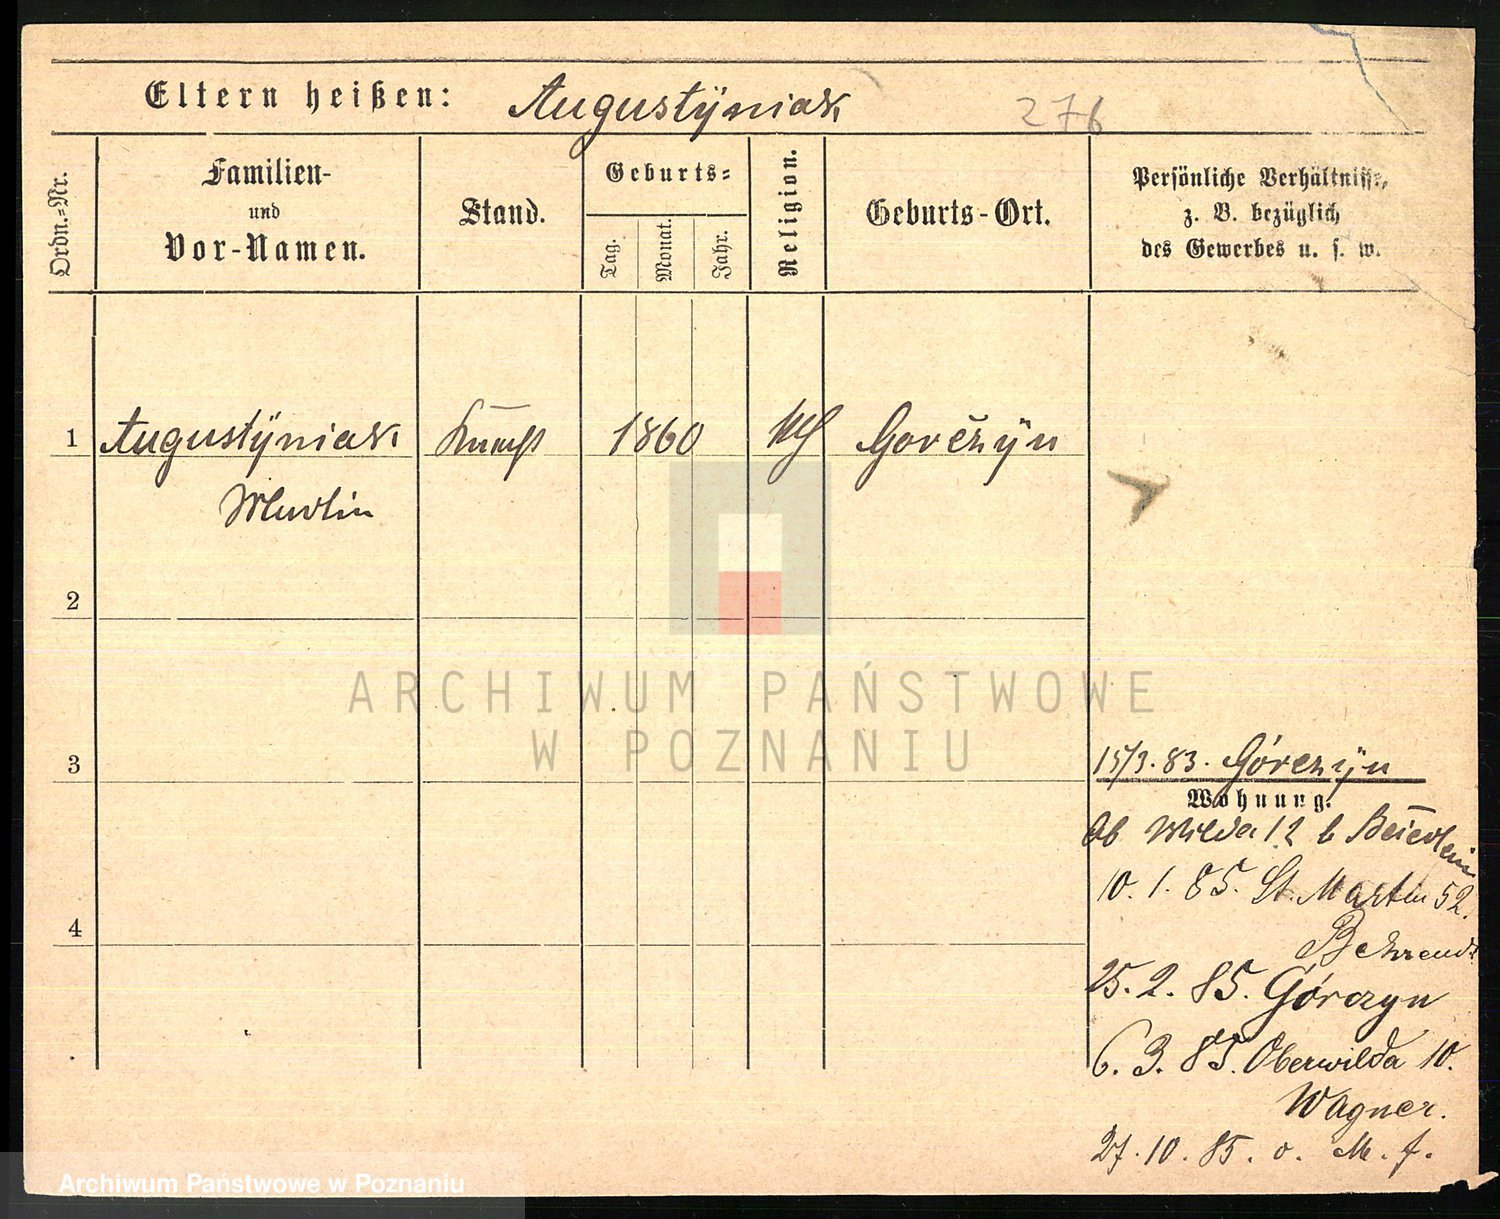 Eltern heißen: Augustÿniak 276
Ordn.=Nr.
Familien-
und
Vor-Namen.
Stand.
Geburts=
Tag.
Monat.
Jahr.
Religion.
Geburts-Ort.
Persönliche Verhältnisse,
z. B. bezüglich
des Gewerbes u. s. w.
1 Augustÿniak 1860
2
3
4
15/3. 83. Górczÿn
Wohnung.
Ob Wilda 12 b
10. 1. 85. St. Martin 52.
Behrendt
25. 2. 85. Górczyn
6. 3. 85. Oberwilda 10.
Wagner.
27. 10. 85. o. M. f.
ARCHIWUM PAŃSTWOWE
W POZNANIU
Archiwum Państwowe w Poznaniu